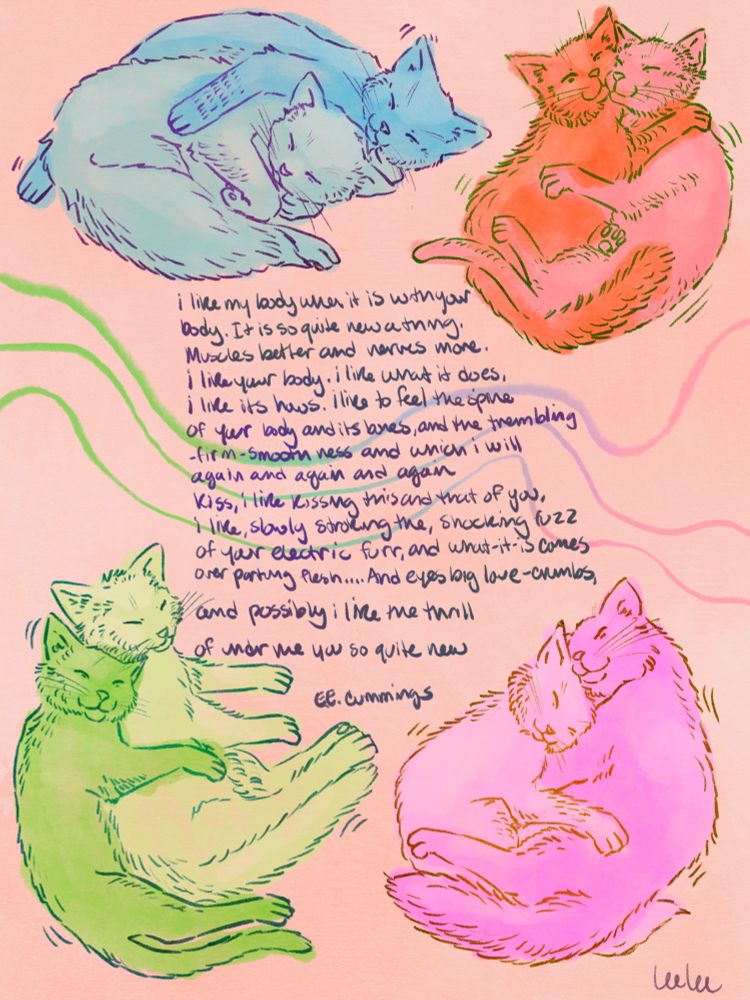 i like my body when it is with your
body. It is so quite new a thing.
Muscles better and nerves more.
i like your body. i like what it does,
i like its hows. i like to feel the spine
of your body and its bones, and the trembling
-firm-smooth ness and which i will
again and again and again
Kiss, i like kissing this and that of you,
i like, slowly stroking the, shocking fuzz
of your electric furr, and what-it-is comes
over parting flesh.... And eyes big love-crumbs,
and possibly i like the thrill
of under me you so quite new
EE. Cummings
LeeLee